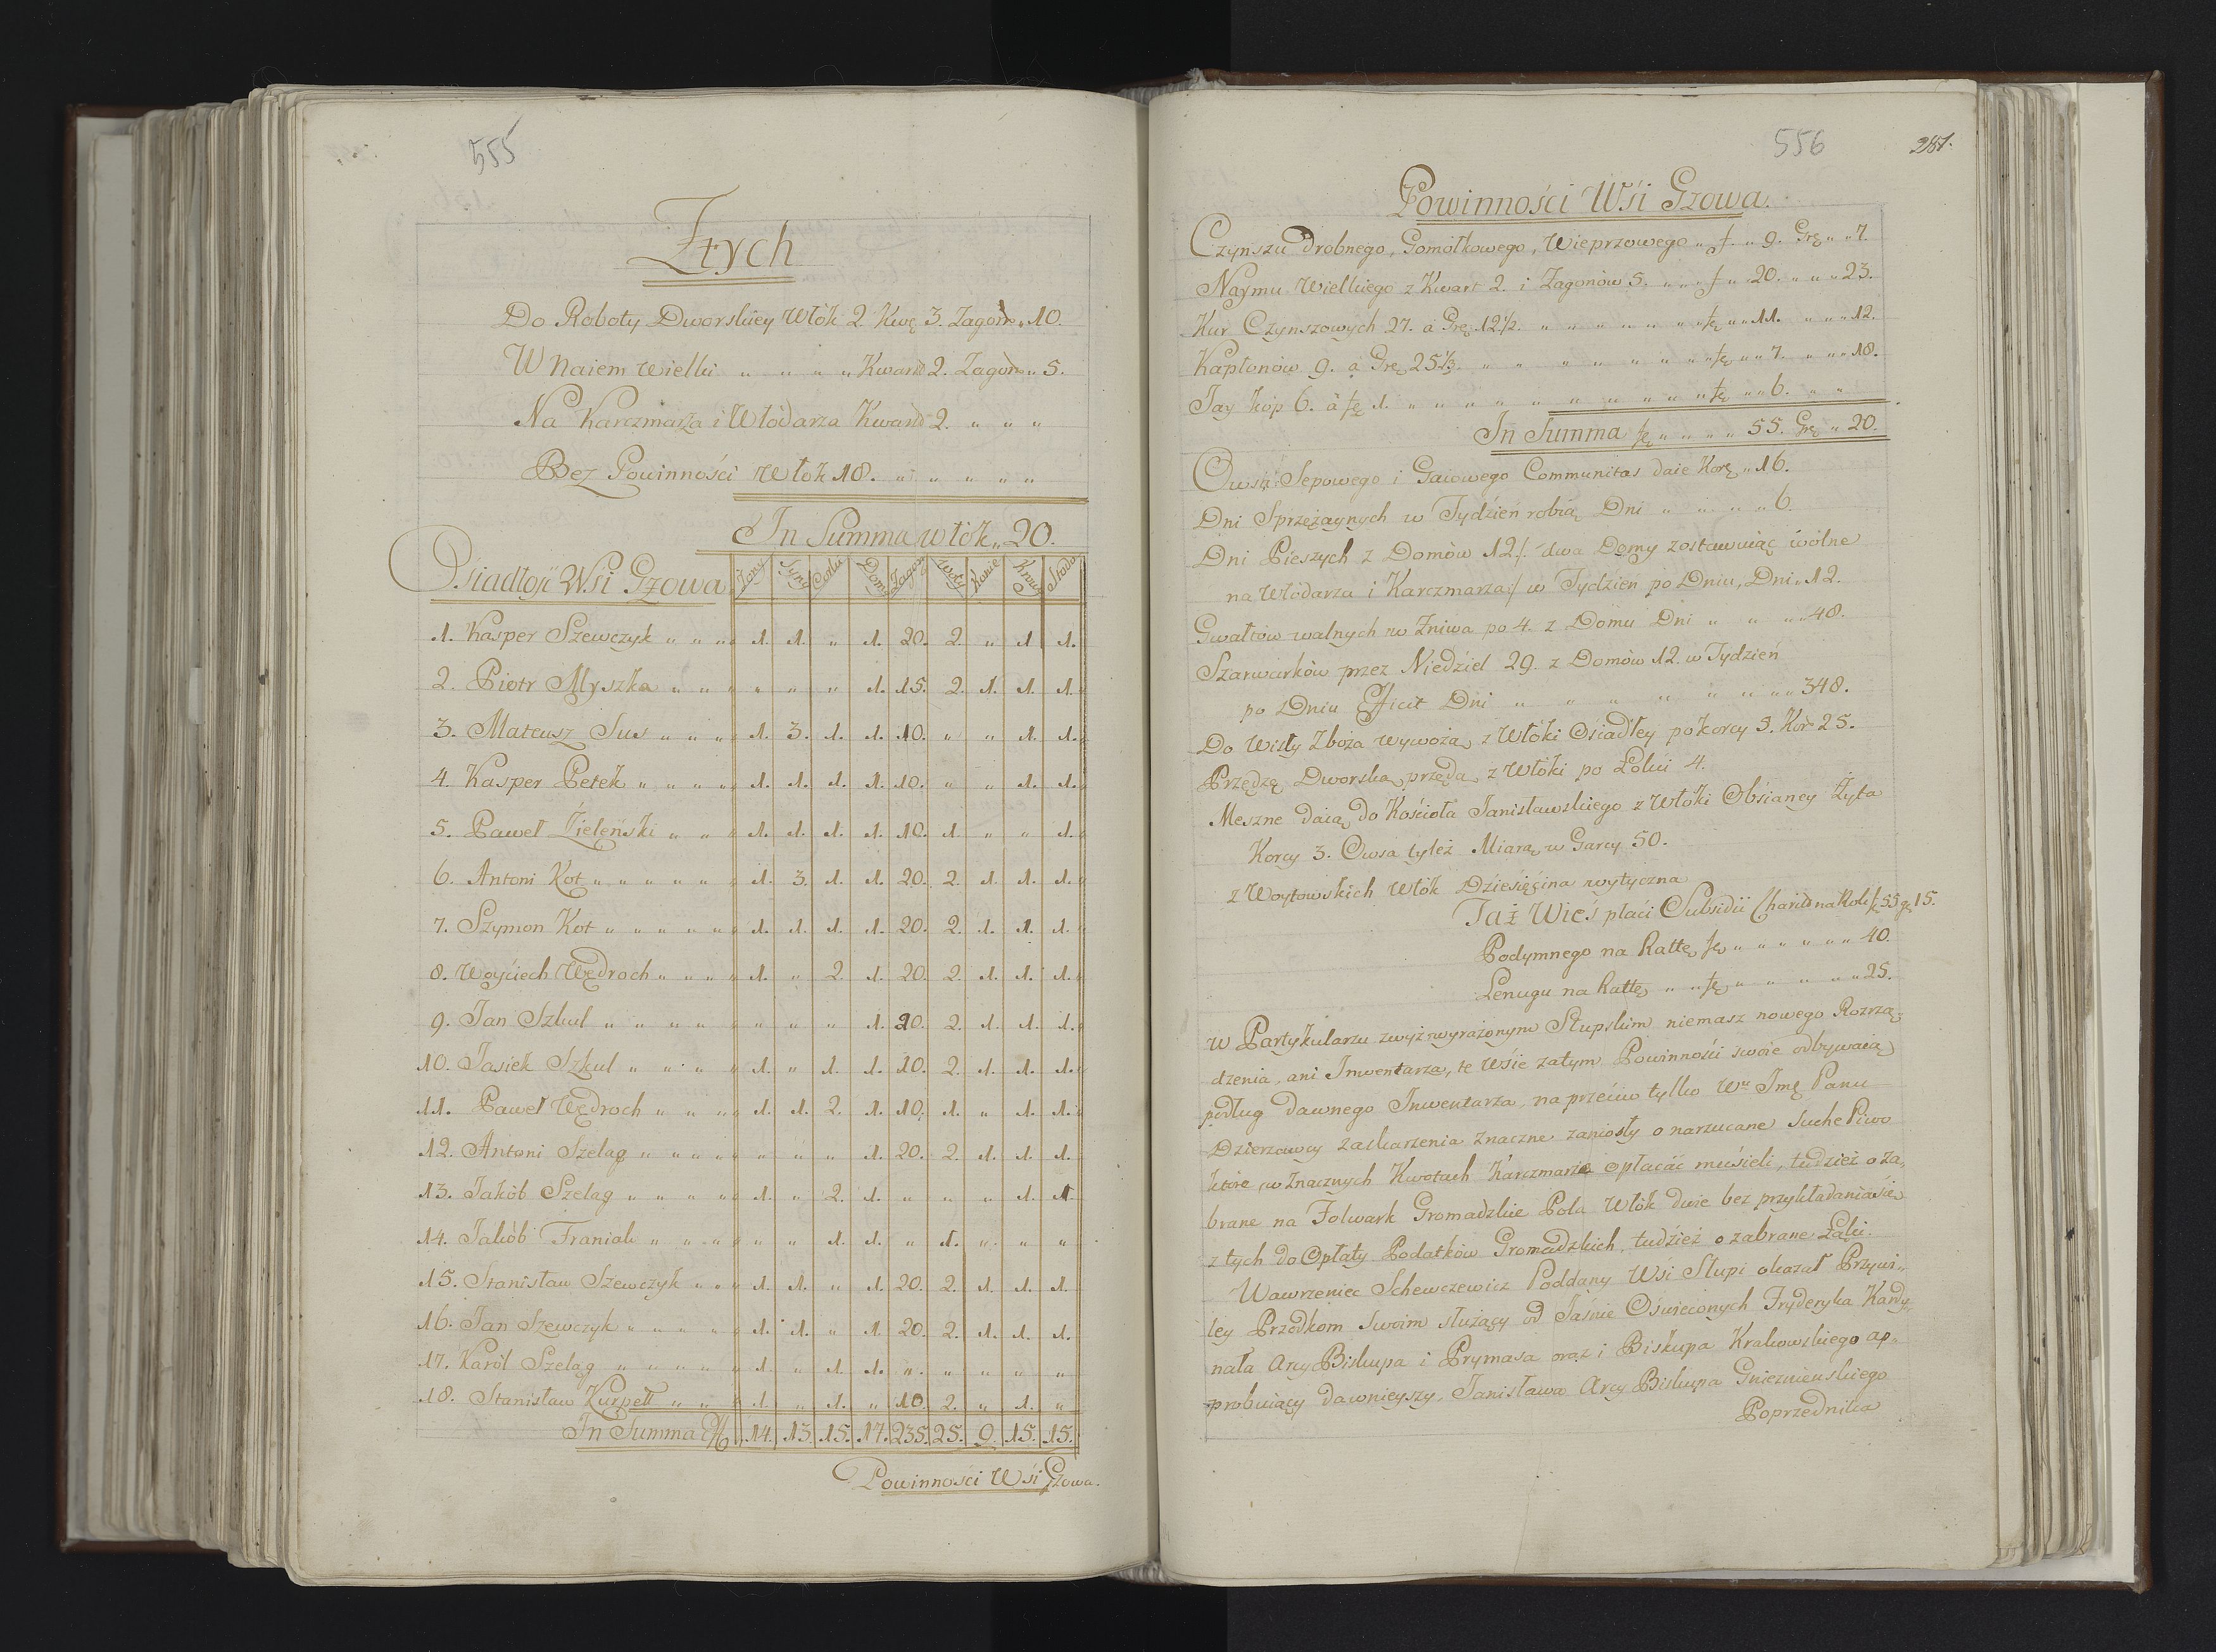 555
Z tych
Do Roboty Dworskiey Włók 2 Kwę 3. Zagon „ 10.
W Naiem Wielki „ „ „ „ Kward 2. Zagon „ 5.
Na Karczmarza i Włodarza Kward 2. „ „ „
Bez Powinności Włók 18. „ „ „ „ „
In Summa włók „ 20.
Osiadłość Wsi Gzowa Żony Syny Córki Domy Zagony Woły Konie Krowy
1. Kasper Szewczyk „ „ „ 1. 1. „ 1. 20. 2. „ 1 1.
2. Piotr Myszka „ „ „ „ „ „ 1. 15. 2. 1. 1. 1.
3. Mateusz Sus „ „ „ 1. 3. 1. 1. 10. „ „ 1. 1.
4. Kasper Petek „ „ „ „ 1. 1. 1. 1. 10. „ „ 1. 1.
5. Paweł Zieleński „ „ „ 1. 1. 1. 1. 10. 1. „ „ 1.
6. Antoni Kot „ „ „ „ „ „ 1. 3. 1. 1. 20. 2. 1. 1. 1.
7. Szymon Kot „ „ „ „ „ 1. 1. 1. 1. 20. 2. 1. 1. 1.
8. Woyciech Wędroch „ „ „ „ 1. „ 2. 1. 20. 2. 1. 1. 1.
9. Jan Szkul „ „ „ „ „ „ „ „ 1. 20. 2. 1. 1. 1.
10. Jasiek Szkul „ „ „ „ 1. „ 1. 1. 10. 2. 1. 1. 1.
11. Paweł Wędroch „ „ „ 1. 1. 2. 1. 10. 1. „ 1. 1.
12. Antoni Szeląg „ „ „ „ „ „ „ 1. 20. 2. 1. 1. 1.
13. Jakób Szeląg „ „ „ „ 1. „ 2. 1. „ „ „ 1. 1
14. Jakób Franiak „ „ „ „ „ „ 1. 1. „ 1. „ „ „
15. Stanisław Szewczyk „ „ „ 1. 1. „ 1. 20. 2. 1. 1. 1.
16. Jan Szewczyk „ „ „ „ „ 1. 1. „ 1. 20. 2. 1. 1. 1.
17. Karól Szeląg „ „ „ „ „ 1. „ 1. 1. „ „ „ „ „
18. Stanisław Kurpett „ „ „ 1. „ 1. „ 10. 2. „ 1. „
In Summa 14. 13. 15. 17. 235. 25. 9. 15. 15.
Powinności Wsi Gzowa.
556 287.
Powinności Wsi Gzowa.
Czynszu Drobnego, Gomółkowego, Wieprzowego „ f „ 9. Grę „ „ 7.
Naymu Wielkiego z Kwart 2. i Zagonów 5. „ „ „ f „ 20. „ „ „ 23.
Kur Czynszowych 27. a Grę 12 1/2. „ „ „ „ „ „ „ fę „ „ 11. „ „ „ 12.
Kapłonów 9. a Grę 25 1/3. „ „ „ „ „ „ „ „ fę „ „ 7. „ „ „ 18.
Jay kop 6. a fę 1. „ „ „ „ „ „ „ „ „ „ fę „ „ 6. „ „
In Summa fę „ „ „ „ 55. Grę „ 20.
Owsa Sepowego i Gaiowego Communitas daie Korę „ 16.
Dni Sprzężaynych w Tydzień robią Dni „ „ „ „ 6.
Dni Pieszych z Domów 12 /: dwa Domy zostawuiąc wólne
na Włodarza i Karczmarza :/ w Tydzień po Dniu, Dni „ 12.
Gwałtów walnych w Żniwa po 4. z Domu Dni „ „ „ „ 48.
Szarwarków przez Niedziel 29. z Domów 12. w Tydzień
po Dniu Efficit Dni „ „ „ „ „ „ „ „ 348.
Do Wisły Zboża wywożą z Włóki Osiadłey po korcy 9. Kor 25.
Przędzę Dworską przędą z Włóki po Łokci 4.
Meszne daią do Kościoła Janisławskiego z Włóki Obsianey Żyta
Korcy 3. Owsa tyleż Miarą w Garcy 50.
z Woytowskich Włók Dziesięcina wytyczna
Taż Wieś płaci Subsidii Charid na Rok f 55 g 15.
Podymnego na Rattę fę „ „ „ „ „ „ 40.
Lenugu na Rattę „ „ fę „ „ „ „ „ „ 25.
w Partykularzu zwyż wyrażonym Słupskim niemasz nowego Rozrzą„
dzenia, ani Inwentarza, te Wsie zatym Powinności swoie odbywaią
podług dawnego Inwentarza, na przeciw tylko Wu Jmę Panu
Dzierżawcy zaskarżenia znaczne zaniosły o narzucane Suche Piwo
które w znacznych Kwotach Karczmarze opłacać musieli, tudzież o za„
brane na Folwark Gromadzkie Pola Włók dwie bez przykładania się
z tych do Opłaty Podatków Gromadzkich, tudzież o zabrane Łąki.
Wawrzeniec Schewczewicz Poddany Wsi Słupi okazał Przywi„
ley Przodkom swoim służący od Jaśnie Oświeconych Fryderyka Kardy„
nała Arcy Biskupa i Prymasa oraz i Biskupa Krakowskiego ap„
probuiący dawnieyszy Janisława Arcy Biskupa Gnieznienskiego
Poprzednika